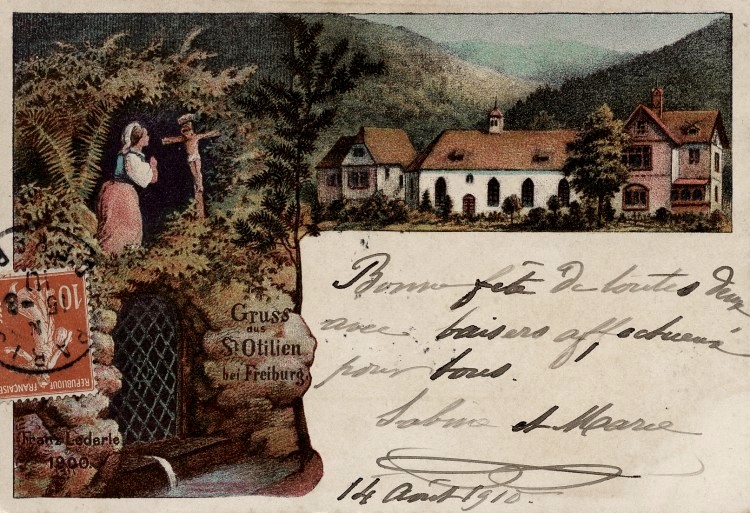 Gruss
aus
St Otilien
bei Freiburg.
Franz Lederle
1900.
Bonne fête de toutes deux
avec baisers affectueux
pour tous.
Sabine et Marie
14 Août 1910
10c
REPUBLIQUE FRANCAISE
PARIS